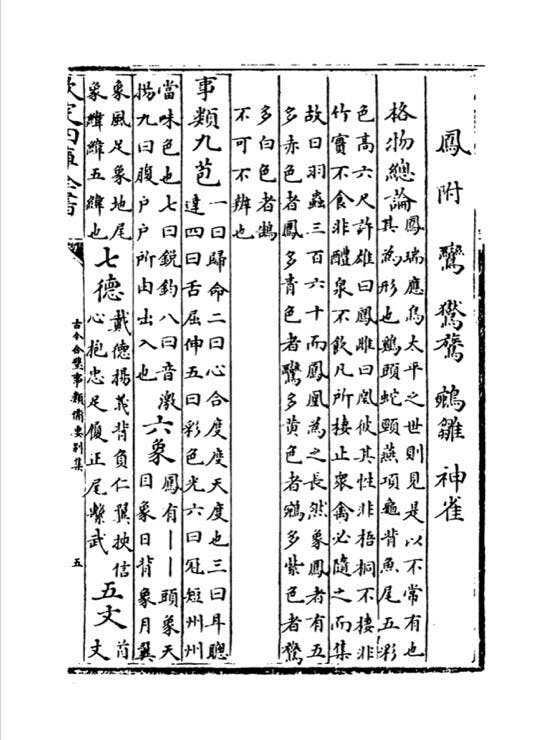 鳳附 鸞 鸑鷟 鵷雛 神雀
格物總論鳳瑞應鳥太平之世則見是以不常有也
其為形也鷄頭蛇頸燕頷龜背魚尾五彩
色高六尺許雄曰鳳雌曰凰彼其性非梧桐不棲非
竹實不食非醴泉不飲凡所棲止衆禽必隨之而集
故曰羽蟲三百六十而鳳凰為之長然象鳳者有五
多赤色者鳳多青色者鸞多黄色者鵷多紫色者鸑
多白色者鵠
不可不辨也
事類九苞一曰歸命二曰心合度度天度也三曰耳聰
達四曰舌屈伸五曰彩色光六曰冠短州州
當味色也七曰鋭鈎八曰音激
揚九曰腹户户所由出入也
六象鳳有一一頭象天
目象日背象月翼
象風足象地尾
象緯緯五緯也
七德戴德揚義背負仁翼挾信
心抱忠足履正尾繫武
五文首
文
欽定四庫全書
古今合璧事類備要别集
五